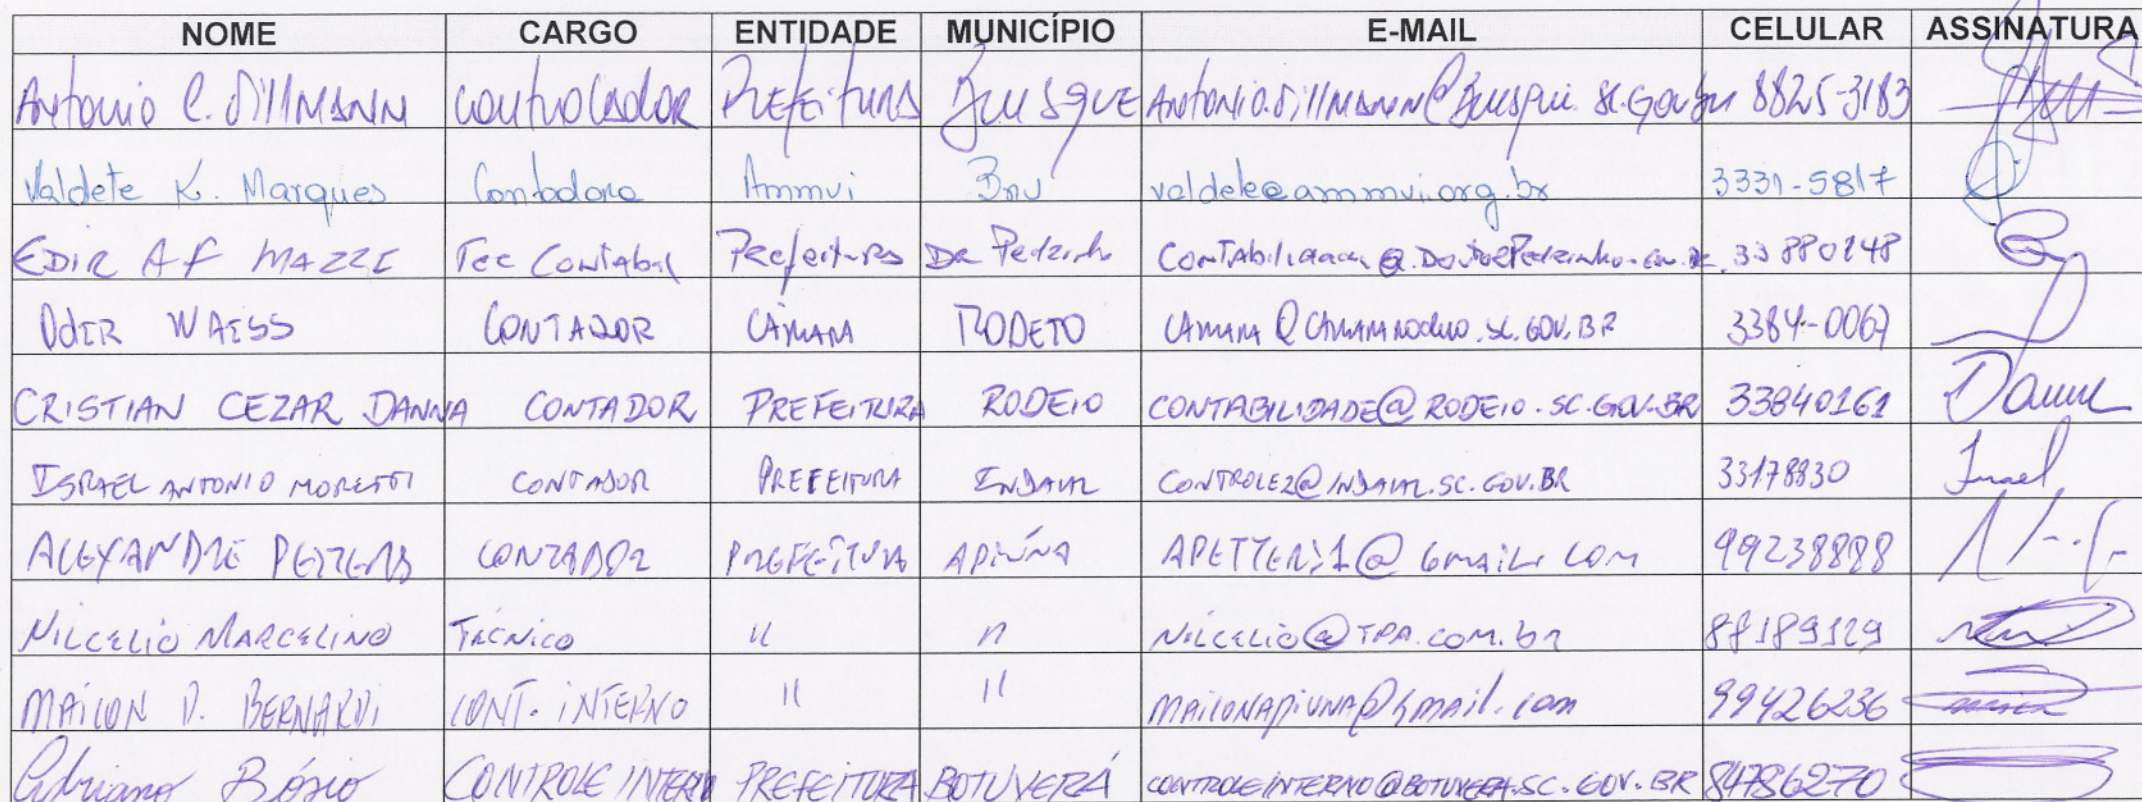 NOME CARGO ENTIDADE MUNICÍPIO E-MAIL CELULAR ASSINATURA
Antonio C. Dillmann Controlador Prefeitura Brusque Antonio.Dillmann@Brusque.sc.gov.br 8825-3183
Valdete K. Marques Contadora Ammvi Bnu valdete@ammvi.org.br 3331-5817
EDIR A F MAZZI Tec Contabil Prefeitura Dr Pedrinho 33 880148
Odir WAISS CONTADOR CÂMARA RODEIO CAMARA@CAMARARODEIO.SC.GOV.BR 3384-0067
CRISTIAN CEZAR DANNA CONTADOR PREFEITURA RODEIO CONTABILIDADE@RODEIO.SC.GOV.BR 33840161 Danna
ISRAEL ANTONIO MORETTI CONTADOR PREFEITURA INDAIAL CONTROLE2@INDAIAL.SC.GOV.BR 33178830 Israel
ALEXANDRE PETTERS CONTADOR PREFEITURA APIÚNA APETTERS1@GMAIL.COM 99238888
NILCELIO MARCELINO TÉCNICO " " NILCELIO@TPA.COM.br 88189129
MAICON D. BERNARDI CONT. INTERNO " " MAICONAPIUNA@GMAIL.com 99426236
Adriano Bósio CONTROLE INTERNO PREFEITURA BOTUVERÁ CONTROLEINTERNO@BOTUVERA.SC.GOV.BR 84786270